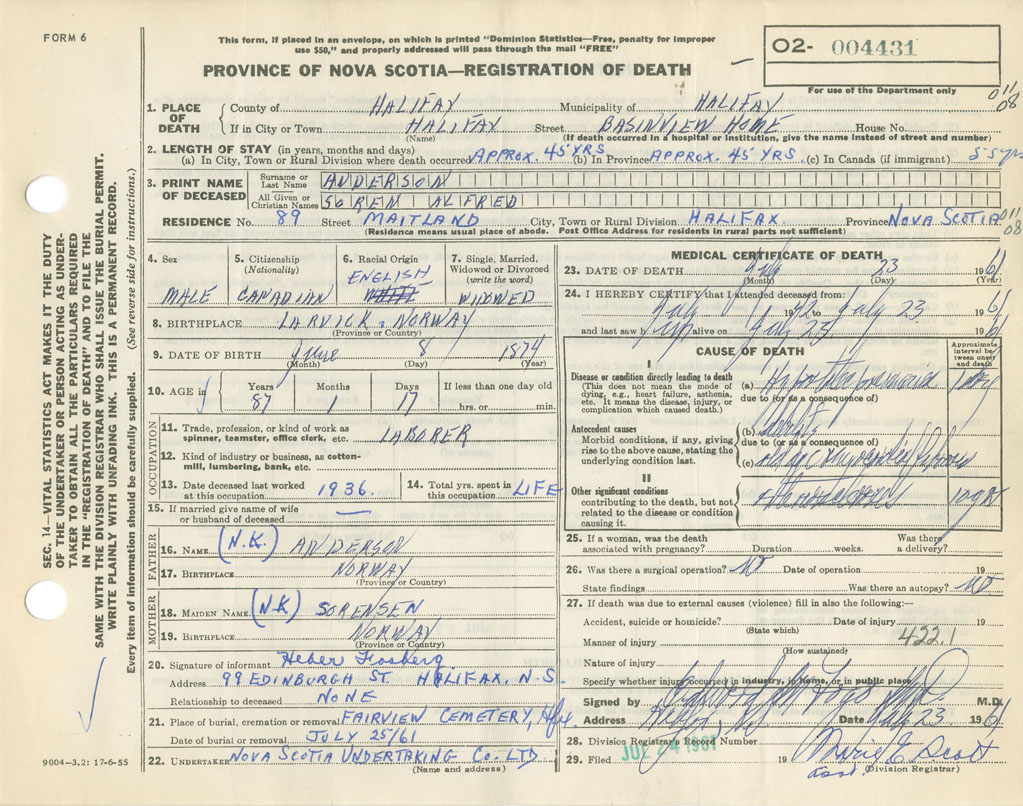 FORM 6
This form, if placed in an envelope, on which is printed "Dominion Statistics—Free, penalty for improper
use $50," and properly addressed will pass through the mail "FREE"
PROVINCE OF NOVA SCOTIA—REGISTRATION OF DEATH
02- 004431
For use of the Department only
011
08
1. PLACE OF DEATH
County of HALIFAX Municipality of HALIFAX
If in City or Town HALIFAX Street BASINVIEW HOME House No.
(Name) (If death occurred in a hospital or institution, give the name instead of street and number)
2. LENGTH OF STAY (in years, months and days)
(a) In City, Town or Rural Division where death occurred APPROX. 45 YRS (b) In Province APPROX. 45 YRS. (c) In Canada (if immigrant) 55 yrs
3. PRINT NAME OF DECEASED
Surname or Last Name ANDERSON
All Given or Christian Names SOREN ALFRED
RESIDENCE No. 89 Street MAITLAND City, Town or Rural Division HALIFAX Province NOVA SCOTIA 011
08
(Residence means usual place of abode. Post Office Address for residents in rural parts not sufficient)
4. Sex
MALE
5. Citizenship
(Nationality)
CANADIAN
6. Racial Origin
ENGLISH
WHITE
7. Single, Married,
Widowed or Divorced
(write the word)
WIDOWED
8. BIRTHPLACE LARVICK, NORWAY
(Province or Country)
9. DATE OF BIRTH June 8 1874
(Month) (Day) (Year)
10. AGE
Years Months Days If less than one day old
87 1 17 hrs. or min.
OCCUPATION
11. Trade, profession, or kind of work as
spinner, teamster, office clerk, etc. LABORER
12. Kind of industry or business, as cotton-
mill, lumbering, bank, etc.
13. Date deceased last worked
at this occupation 1936.
14. Total yrs. spent in
this occupation LIFE
15. If married give name of wife
or husband of deceased —
FATHER
16. NAME (N.K.) ANDERSON
17. BIRTHPLACE NORWAY
(Province or Country)
MOTHER
18. MAIDEN NAME (N.K) SORENSEN
19. BIRTHPLACE NORWAY
(Province or Country)
20. Signature of informant Heber Fosberg
Address 99 EDINBURGH ST. HALIFAX, N.S.
Relationship to deceased NONE
21. Place of burial, cremation or removal FAIRVIEW CEMETERY, Hfx.
Date of burial or removal JULY 25/61
22. UNDERTAKER NOVA SCOTIA UNDERTAKING CO. LTD
(Name and address)
9004-3.2: 17-6-55
MEDICAL CERTIFICATE OF DEATH
23. DATE OF DEATH July 23 1961
(Month) (Day) (Year)
24. I HEREBY CERTIFY that I attended deceased from:
July 1 to July 23 1961
and last saw h alive on July 23 1961
CAUSE OF DEATH
Approximate
interval be-
tween onset
and death
I
Disease or condition directly leading to death
(This does not mean the mode of
dying, e.g., heart failure, asthenia,
etc. It means the disease, injury, or
complication which caused death.)
(a)
due to (or as a consequence of)
Antecedent causes
Morbid conditions, if any, giving
rise to the above cause, stating the
underlying condition last.
(b)
due to (or as a consequence of)
(c)
II
Other significant conditions
contributing to the death, but not
related to the disease or condition
causing it.
10 yrs
25. If a woman, was the death
associated with pregnancy? Duration weeks. Was there
a delivery?
26. Was there a surgical operation? NO Date of operation 19
State findings Was there an autopsy? NO
27. If death was due to external causes (violence) fill in also the following:—
Accident, suicide or homicide? Date of injury 19
(State which)
Manner of injury 422.1
(How sustained)
Nature of injury
Specify whether injury occurred in industry, in home, or in public place
Signed by M.D.
Address Date July 23 1961
28. Division Registrar's Record Number
29. Filed JUL 24 1961 19 Marie E. Scott
asst. (Division Registrar)
SEC. 14—VITAL STATISTICS ACT MAKES IT THE DUTY
OF THE UNDERTAKER OR PERSON ACTING AS UNDER-
TAKER TO OBTAIN ALL THE PARTICULARS REQUIRED
IN THE "REGISTRATION OF DEATH" AND TO FILE THE
SAME WITH THE DIVISION REGISTRAR WHO SHALL ISSUE THE BURIAL PERMIT.
WRITE PLAINLY WITH UNFADING INK. THIS IS A PERMANENT RECORD.
Every item of information should be carefully supplied. (See reverse side for instructions.)